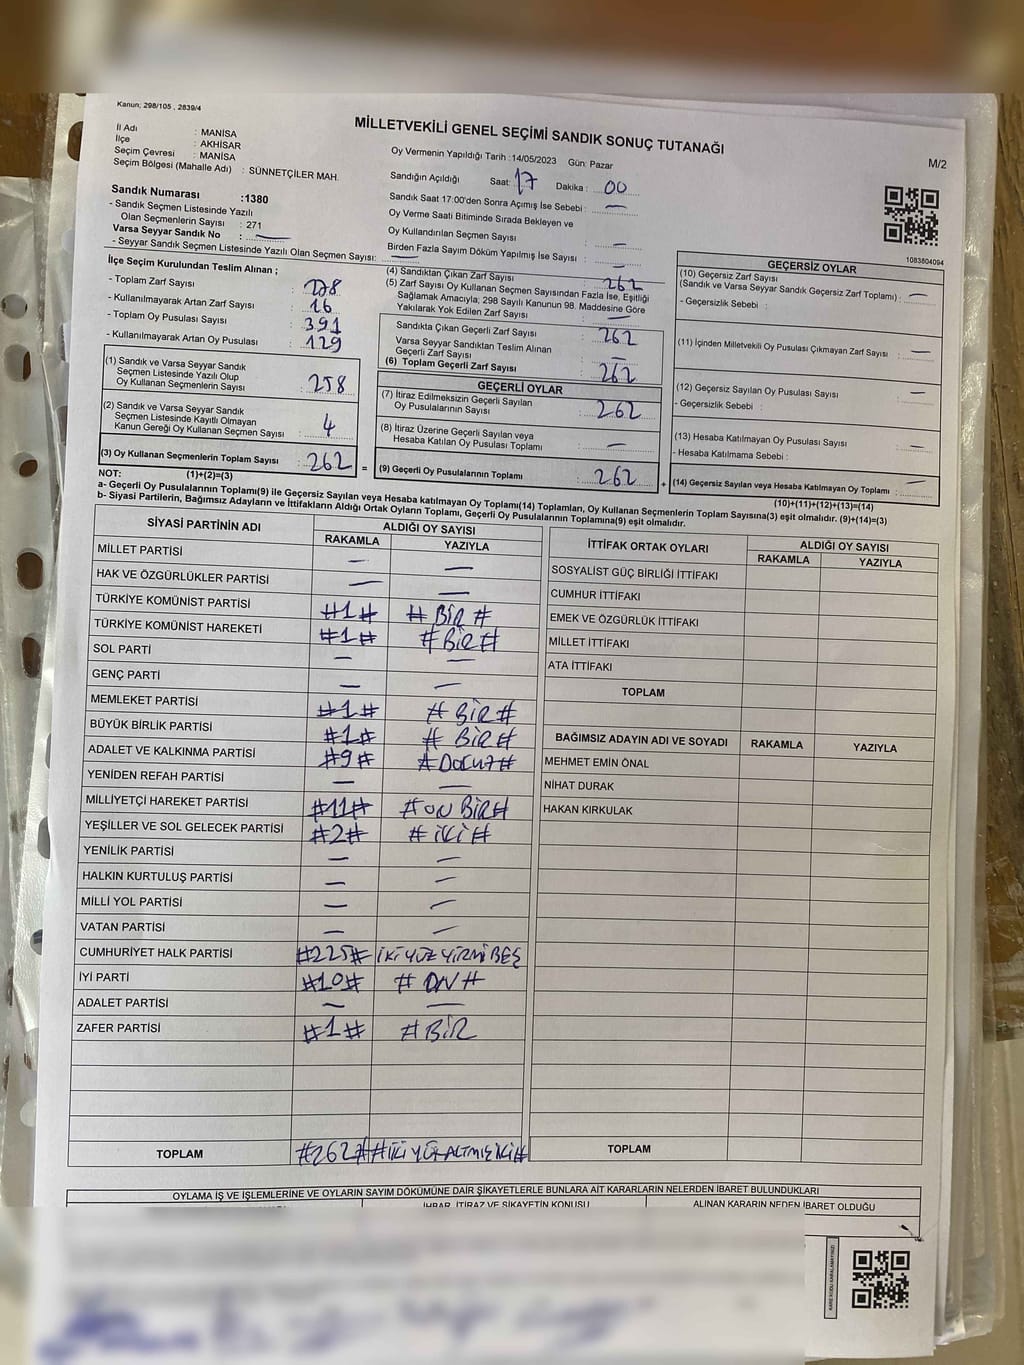 Kanun; 298/105 , 2839/4
MİLLETVEKİLİ GENEL SEÇİMİ SANDIK SONUÇ TUTANAĞI
M/2
İl Adı : MANİSA
İlçe : AKHİSAR
Seçim Çevresi : MANİSA
Seçim Bölgesi (Mahalle Adı) : SÜNNETÇİLER MAH.
Sandık Numarası :1380
- Sandık Seçmen Listesinde Yazılı
Olan Seçmenlerin Sayısı : 271
Varsa Seyyar Sandık No : —
- Seyyar Sandık Seçmen Listesinde Yazılı Olan Seçmen Sayısı: —
Oy Vermenin Yapıldığı Tarih :14/05/2023 Gün: Pazar
Sandığın Açıldığı Saat: 17 Dakika : 00
Sandık Saat 17:00'den Sonra Açımış İse Sebebi : —
Oy Verme Saati Bitiminde Sırada Bekleyen ve
Oy Kullandırılan Seçmen Sayısı : —
Birden Fazla Sayım Döküm Yapılmış İse Sayısı : —
1083804094
İlçe Seçim Kurulundan Teslim Alınan ;
- Toplam Zarf Sayısı : 278
- Kullanılmayarak Artan Zarf Sayısı : 16
- Toplam Oy Pusulası Sayısı : 391
- Kullanılmayarak Artan Oy Pusulası : 129
(1) Sandık ve Varsa Seyyar Sandık
Seçmen Listesinde Yazılı Olup
Oy Kullanan Seçmenlerin Sayısı : 258
(2) Sandık ve Varsa Seyyar Sandık
Seçmen Listesinde Kayıtlı Olmayan
Kanun Gereği Oy Kullanan Seçmen Sayısı : 4
(3) Oy Kullanan Seçmenlerin Toplam Sayısı : 262 =
(4) Sandıktan Çıkan Zarf Sayısı : 262
(5) Zarf Sayısı Oy Kullanan Seçmen Sayısından Fazla İse, Eşitliği
Sağlamak Amacıyla; 298 Sayılı Kanunun 98. Maddesine Göre
Yakılarak Yok Edilen Zarf Sayısı : —
Sandıkta Çıkan Geçerli Zarf Sayısı : 262
Varsa Seyyar Sandıktan Teslim Alınan
Geçerli Zarf Sayısı : —
(6) Toplam Geçerli Zarf Sayısı : 262
GEÇERLİ OYLAR
(7) İtiraz Edilmeksizin Geçerli Sayılan
Oy Pusulalarının Sayısı : 262
(8) İtiraz Üzerine Geçerli Sayılan veya
Hesaba Katılan Oy Pusulası Toplamı : —
(9) Geçerli Oy Pusulalarının Toplamı : 262 +
GEÇERSİZ OYLAR
(10) Geçersiz Zarf Sayısı
(Sandık ve Varsa Seyyar Sandık Geçersiz Zarf Toplamı) : —
- Geçersizlik Sebebi :
(11) İçinden Milletvekili Oy Pusulası Çıkmayan Zarf Sayısı : —
(12) Geçersiz Sayılan Oy Pusulası Sayısı : —
- Geçersizlik Sebebi :
(13) Hesaba Katılmayan Oy Pusulası Sayısı : —
- Hesaba Katılmama Sebebi :
(14) Geçersiz Sayılan veya Hesaba Katılmayan Oy Toplamı : —
NOT: (1)+(2)=(3)
(10)+(11)+(12)+(13)=(14)
a- Geçerli Oy Pusulalarının Toplamı(9) ile Geçersiz Sayılan veya Hesaba katılmayan Oy Toplamı(14) Toplamları, Oy Kullanan Seçmenlerin Toplam Sayısına(3) eşit olmalıdır. (9)+(14)=(3)
b- Siyasi Partilerin, Bağımsız Adayların ve İttifakların Aldığı Ortak Oyların Toplamı, Geçerli Oy Pusulalarının Toplamına(9) eşit olmalıdır.
SİYASİ PARTİNİN ADI ALDIĞI OY SAYISI
RAKAMLA YAZIYLA
MİLLET PARTİSİ — —
HAK VE ÖZGÜRLÜKLER PARTİSİ — —
TÜRKİYE KOMÜNİST PARTİSİ #1# #BİR#
TÜRKİYE KOMÜNİST HAREKETİ #1# #BİR#
SOL PARTİ — —
GENÇ PARTİ — —
MEMLEKET PARTİSİ #1# #BİR#
BÜYÜK BİRLİK PARTİSİ #1# #BİR#
ADALET VE KALKINMA PARTİSİ #9# #DOKUZ#
YENİDEN REFAH PARTİSİ — —
MİLLİYETÇİ HAREKET PARTİSİ #11# #ON BİR#
YEŞİLLER VE SOL GELECEK PARTİSİ #2# #İKİ#
YENİLİK PARTİSİ — —
HALKIN KURTULUŞ PARTİSİ — —
MİLLİ YOL PARTİSİ — —
VATAN PARTİSİ — —
CUMHURİYET HALK PARTİSİ #225# İKİ YÜZ YİRMİ BEŞ
İYİ PARTİ #10# #ON#
ADALET PARTİSİ — —
ZAFER PARTİSİ #1# #BİR
TOPLAM #262# #İKİ YÜZ ALTMIŞ İKİ#
İTTİFAK ORTAK OYLARI ALDIĞI OY SAYISI
RAKAMLA YAZIYLA
SOSYALİST GÜÇ BİRLİĞİ İTTİFAKI
CUMHUR İTTİFAKI
EMEK VE ÖZGÜRLÜK İTTİFAKI
MİLLET İTTİFAKI
ATA İTTİFAKI
TOPLAM
BAĞIMSIZ ADAYIN ADI VE SOYADI RAKAMLA YAZIYLA
MEHMET EMİN ÖNAL
NİHAT DURAK
HAKAN KIRKULAK
TOPLAM
OYLAMA İŞ VE İŞLEMLERİNE VE OYLARIN SAYIM DÖKÜMÜNE DAİR ŞİKAYETLERLE BUNLARA AİT KARARLARIN NELERDEN İBARET BULUNDUKLARI
İHBAR, İTİRAZ VE ŞİKAYETİN KONUSU ALINAN KARARIN NEDEN İBARET OLDUĞU
KARE KODU KARALAMAYINIZ!